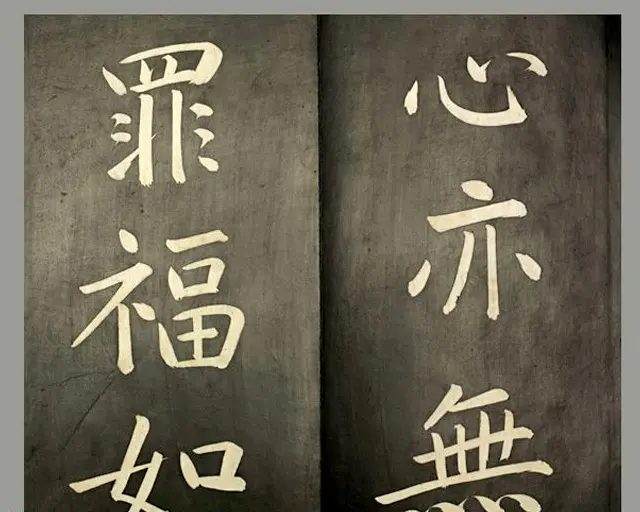 心亦無
罪福如